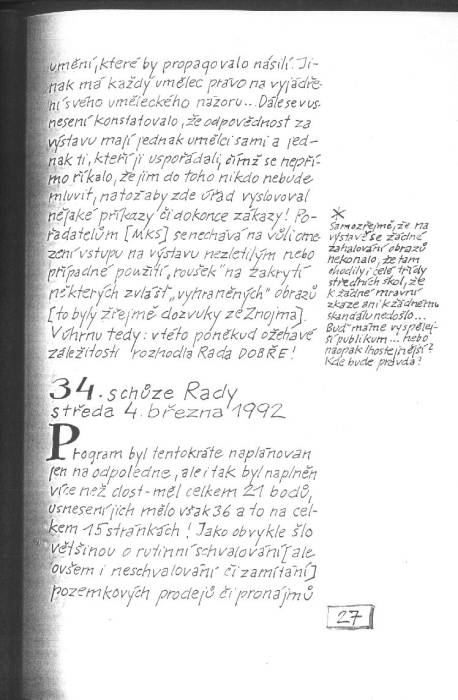 umění, které by propagovalo násilí. Ji-
nak má každý umělec právo na vyjádře-
ní svého uměleckého názoru... Dále se v us-
nesení konstatovalo, že odpovědnost za
výstavu mají jednak umělci sami a jed-
nak ti, kteří ji uspořádali, čímž se nepří-
mo říkalo, že jim do toho nikdo nebude
mluvit, natož aby zde úřad vyslovoval
nějaké příkazy či dokonce zákazy! Po-
řadatelům [MKS] se nechává na vůli ome-
zení vstupu na výstavu nezletilým nebo
případné použití „roušek" na zakrytí
některých zvlášť „vyhraněných" obrazů
[to byly zřejmě dozvuky ze Znojma].
Vúhrnu tedy: v této poněkud ožehavé
záležitosti rozhodla Rada DOBŘE!
*
Samozřejmě, že na
výstavě se žádné
zahalování obrazů
nekonalo, že tam
chodily i celé třídy
středních škol, že
k žádné mravní
zkáze ani k žádnému
skandálu nedošlo...
Buď máme vyspělej-
ší publikum... nebo
naopak lhostejnější?
Kde bude pravda?
34. schůze Rady
středa 4. března 1992
Program byl tentokráte naplánován
jen na odpoledne, ale i tak byl naplněn
více než dost - měl celkem 21 bodů,
usnesení jich mělo však 36 a to na cel-
kem 15 stránkách! Jako obvykle šlo
většinou o rutinní schvalování [ale
ovšem i neschvalování či zamítání]
pozemkových prodejů či pronájmů
27